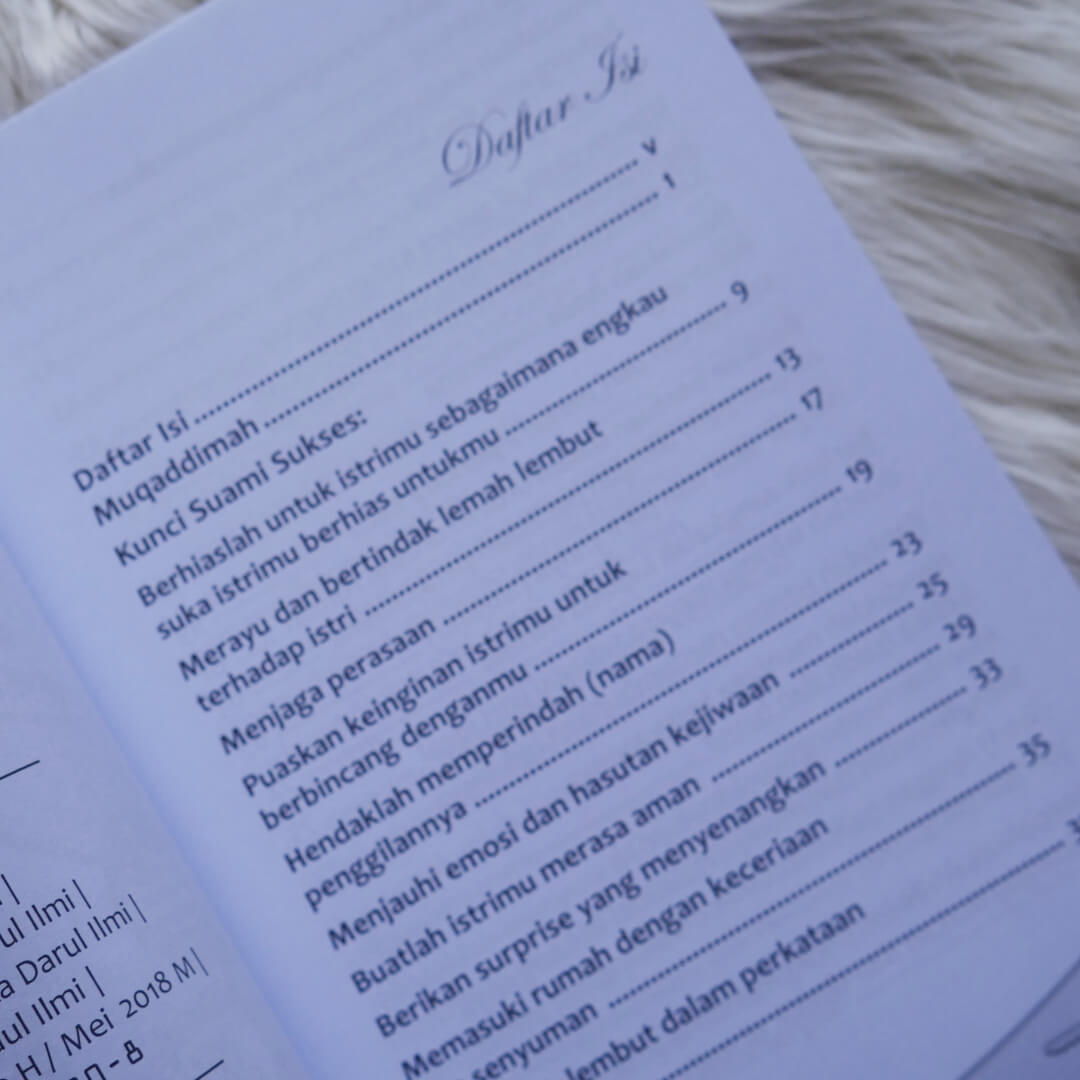 Ilmi |
Darul Ilmi |
Ilmi |
H / Mei 2018 M |
Daftar Isi
Daftar Isi .......... v
Muqaddimah .......... 1
Kunci Suami Sukses:
Berhiaslah untuk istrimu sebagaimana engkau
suka istrimu berhias untukmu .......... 9
Merayu dan bertindak lemah lembut
terhadap istri .......... 13
Menjaga perasaan .......... 17
Puaskan keinginan istrimu untuk
berbincang denganmu .......... 19
Hendaklah memperindah (nama)
penggilannya .......... 23
Menjauhi emosi dan hasutan kejiwaan .......... 25
Buatlah istrimu merasa aman .......... 29
Berikan surprise yang menyenangkan .......... 33
Memasuki rumah dengan keceriaan
senyuman .......... 35
lembut dalam perkataan